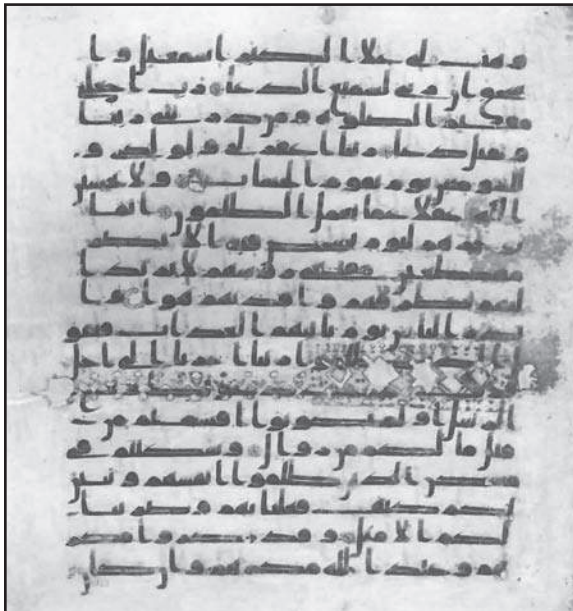 وهب لي على الكبر اسمعيل وا
سحق ان ربي لسميع الدعا رب اجعلني
مقيم الصلوه ومن ذريتي ربنا
وتقبل دعا ربنا اغفر لي ولولدي و
للمومنين يوم يقوم الحساب ولا تحسبن
الله غفلا عما يعمل الظلمون انما
يوخرهم ليوم تشخص فيه الابصر
مهطعين مقنعي روسهم لا يرتد ا
ليهم طرفهم وافدتهم هوا وا
نذر الناس يوم ياتيهم العذاب فيقو
ل الذين ظلموا ربنا اخرنا الى اجل
الرسل اولم تكونوا اقسمتم من
قبل ما لكم من زوال وسكنتم في
مسكن الذين ظلموا انفسهم وتبين
لكم كيف فعلنا بهم وضربنا
لكم الامثل وقد مكروا مكر
هم وعند الله مكرهم وان كان